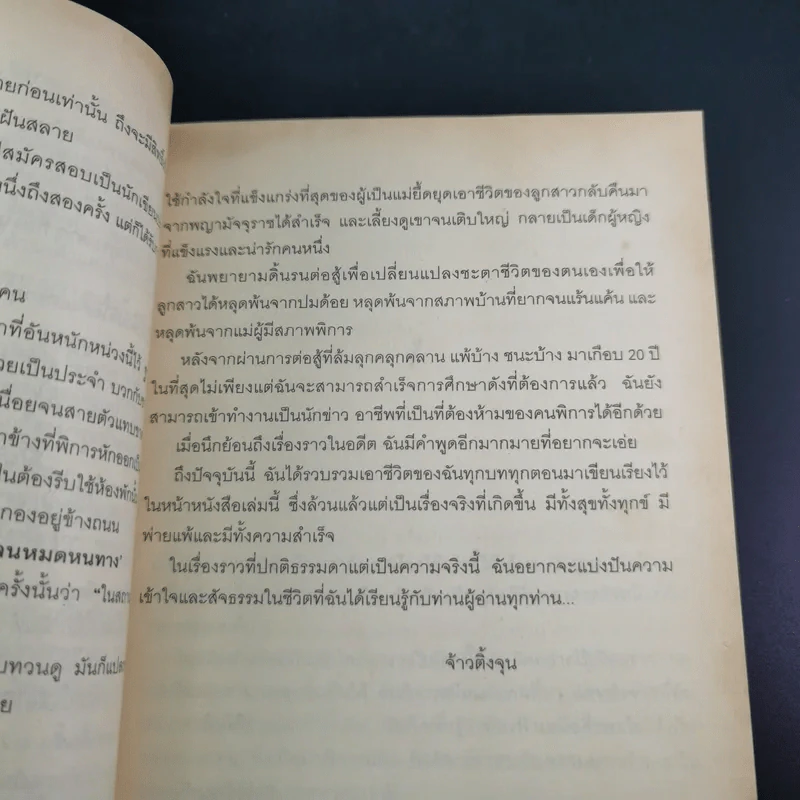 วยก่อนเท่านั้น ถึงจะมี
ฝันสลาย
สมัครสอบเป็นนักเขียน
นึ่งถึงสองครั้ง แต่ก็ได้
คน
าที่อันหนักหน่วงนี้ไว้
วยเป็นประจำ บวกกับ
นื่อยจนสายตัวแทบ
าข้างที่พิการหักออก
ป็นต้องรีบใช้ห้องพัก
กองอยู่ข้างถนน
จนหมดหนทาง'
ครั้งนั้นว่า "ในสถา
บทวนดู มันก็แปล
ย
ใช้กำลังใจที่แข็งแกร่งที่สุดของผู้เป็นแม่ยื้อยุดเอาชีวิตของลูกสาวกลับคืนมา
จากพญามัจจุราชได้สำเร็จ และเลี้ยงดูเขาจนเติบใหญ่ กลายเป็นเด็กผู้หญิง
ที่แข็งแรงและน่ารักคนหนึ่ง
ฉันพยายามดิ้นรนต่อสู้เพื่อเปลี่ยนแปลงชะตาชีวิตของตนเองเพื่อให้
ลูกสาวได้หลุดพ้นจากปมด้อย หลุดพ้นจากสภาพบ้านที่ยากจนแร้นแค้น และ
หลุดพ้นจากแม่ผู้มีสภาพพิการ
หลังจากผ่านการต่อสู้ที่ล้มลุกคลุกคลาน แพ้บ้าง ชนะบ้าง มาเกือบ 20 ปี
ในที่สุดไม่เพียงแต่ฉันจะสามารถสำเร็จการศึกษาดังที่ต้องการแล้ว ฉันยัง
สามารถเข้าทำงานเป็นนักข่าว อาชีพที่เป็นที่ต้องห้ามของคนพิการได้อีกด้วย
เมื่อนึกย้อนถึงเรื่องราวในอดีต ฉันมีคำพูดอีกมากมายที่อยากจะเอ่ย
ถึงปัจจุบันนี้ ฉันได้รวบรวมเอาชีวิตของฉันทุกบททุกตอนมาเขียนเรียงไว้
ในหน้าหนังสือเล่มนี้ ซึ่งล้วนแล้วแต่เป็นเรื่องจริงที่เกิดขึ้น มีทั้งสุขทั้งทุกข์ มี
พ่ายแพ้และมีทั้งความสำเร็จ
ในเรื่องราวที่ปกติธรรมดาแต่เป็นความจริงนี้ ฉันอยากจะแบ่งปันความ
เข้าใจและสัจธรรมในชีวิตที่ฉันได้เรียนรู้กับท่านผู้อ่านทุกท่าน...
จ้าวติ้งจุน